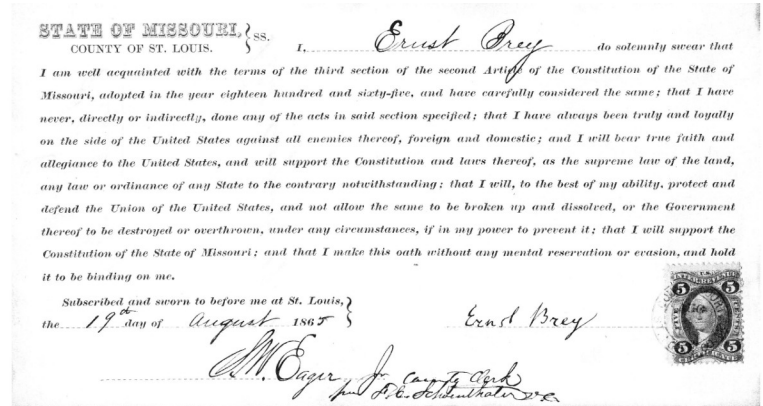 STATE OF MISSOURI, } ss.
COUNTY OF ST. LOUIS.
I, Ernst Brey do solemnly swear that
I am well acquainted with the terms of the third section of the second Article of the Constitution of the State of
Missouri, adopted in the year eighteen hundred and sixty-five, and have carefully considered the same; that I have
never, directly or indirectly, done any of the acts in said section specified; that I have always been truly and loyally
on the side of the United States against all enemies thereof, foreign and domestic; and I will bear true faith and
allegiance to the United States, and will support the Constitution and laws thereof, as the supreme law of the land,
any law or ordinance of any State to the contrary notwithstanding: that I will, to the best of my ability, protect and
defend the Union of the United States, and not allow the same to be broken up and dissolved, or the Government
thereof to be destroyed or overthrown, under any circumstances, if in my power to prevent it; that I will support the
Constitution of the State of Missouri; and that I make this oath without any mental reservation or evasion, and hold
it to be binding on me.
Subscribed and sworn to before me at St. Louis,
the 19th day of August 1865
Ernst Brey
S.W. Eager Jr County Clerk
U.S.
INTER. REVENUE
5 5
FIVE CENTS
5 5